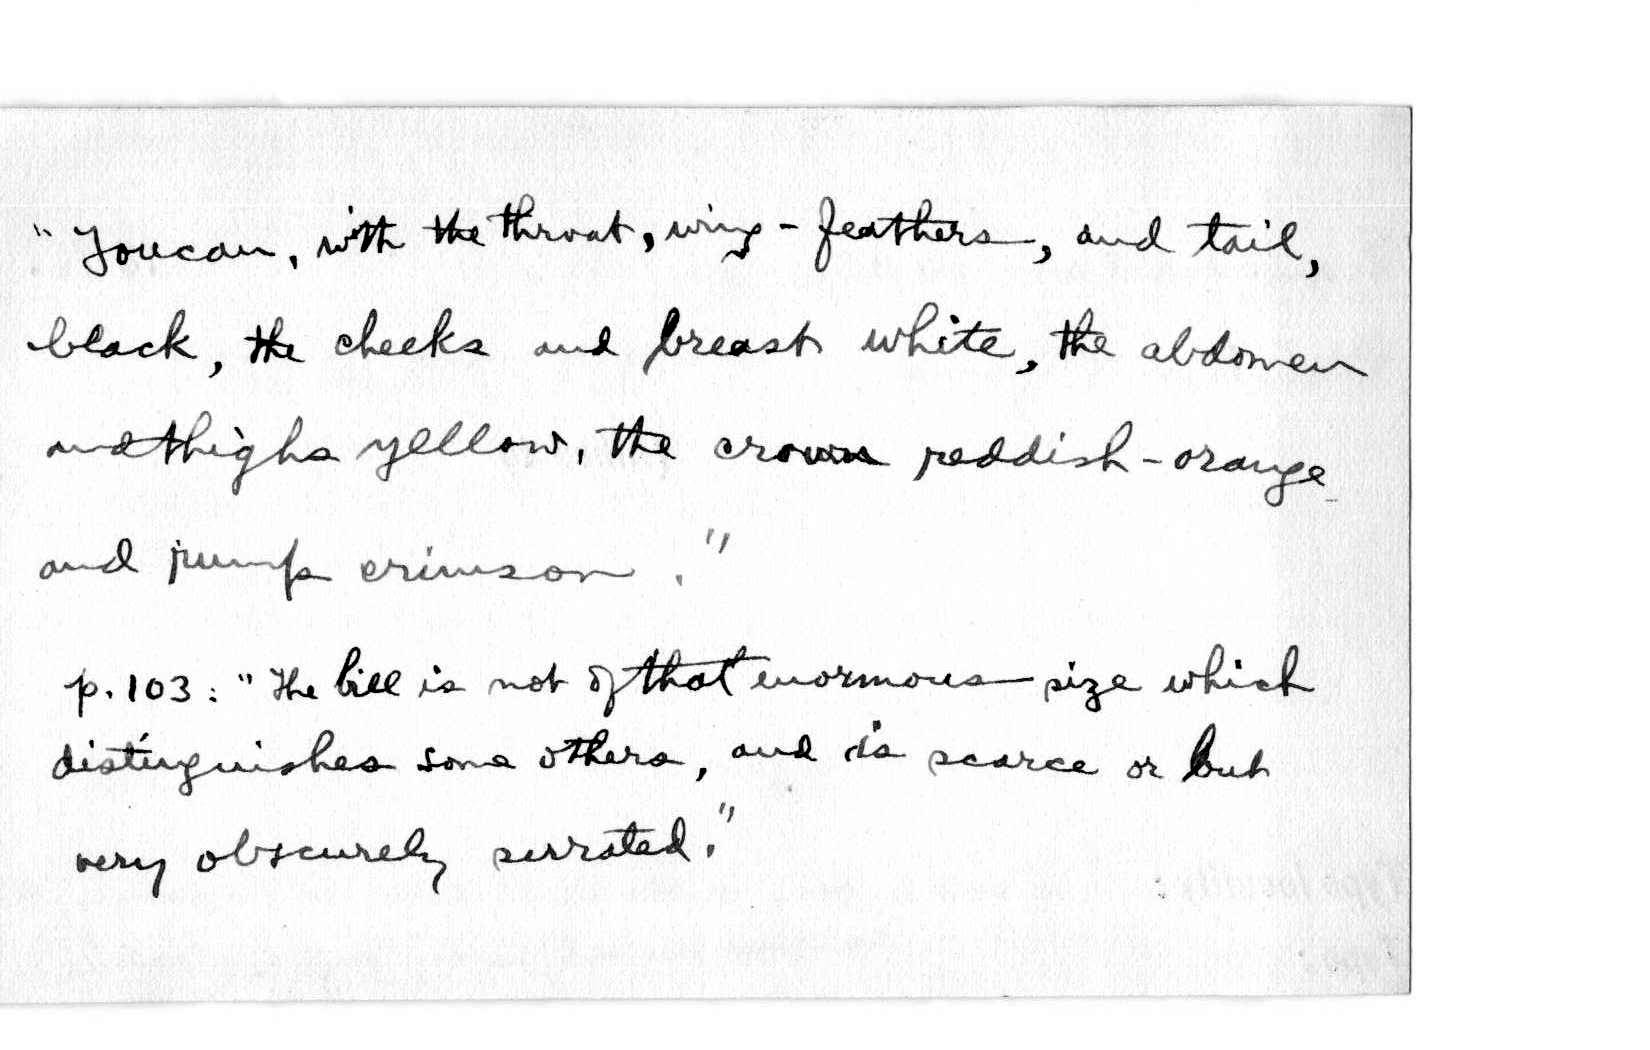 "Toucan, with the throat, wing-feathers, and tail,
black, the cheeks and breast white, the abdomen
and thighs yellow, the crown reddish-orange
and rump crimson."
p. 103: "The bill is not of that enormous size which
distinguishes some others, and is scarce or but
very obscurely serrated."
Type locality:
Type: